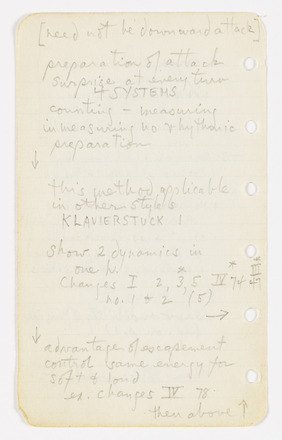 [need not be downward attack]
preparation of attack
surprise at every turn
4 SYSTEMS
counting – measuring
in measuring no rhythmic
preparation
↓
this method applicable
in other styles
KLAVIERSTUCK I
show 2 dynamics in
one h.
Changes I 2, 3, 5 IV 74
no. 1 & 2 (5)
→
↓ advantage of escapement
control same energy for
soft & loud
ex. Changes IV 78
then above ↑